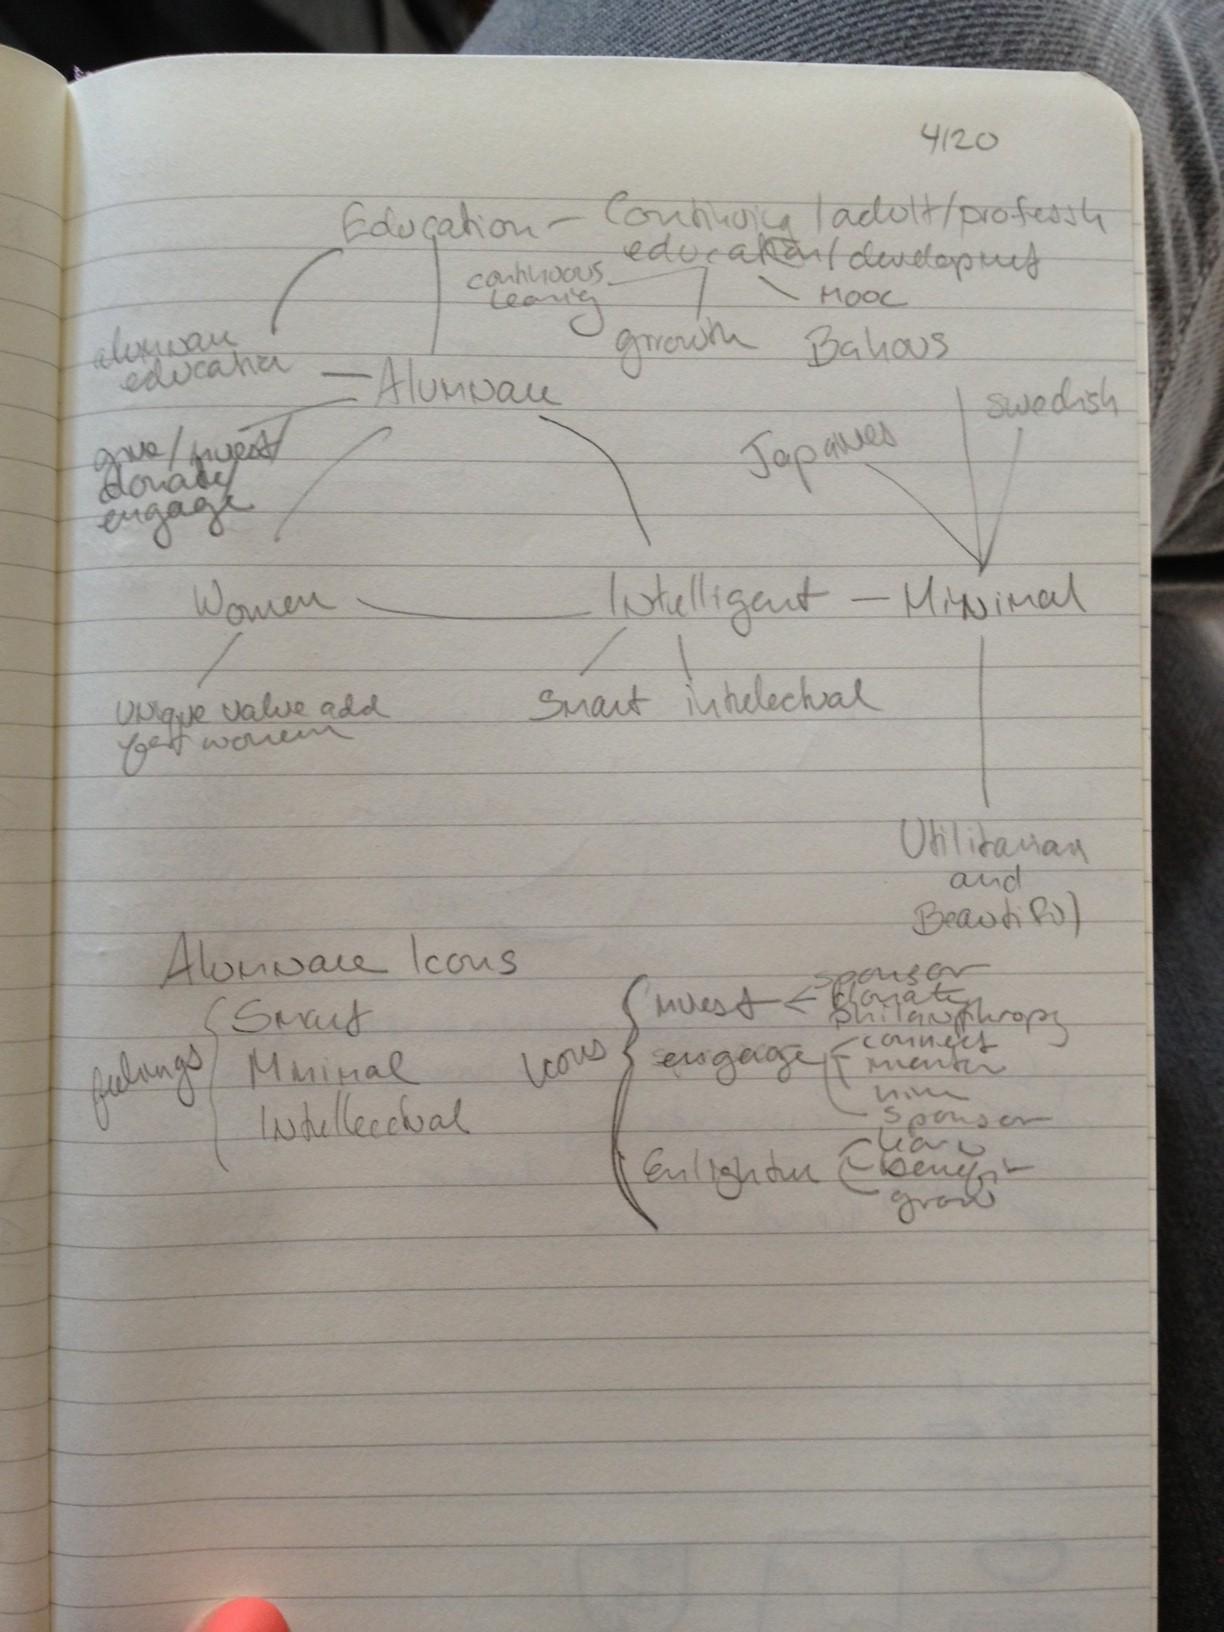 4/20
Education - Continuing /adult/professh
education/developmet
continuous
learnig
MOOC
growth
Bahous
alumnae
education
Alumnae
swedish
Japanies
give/invest/
donate/
engage
Women
Intelligent - Minimal
unique value add
for women
Smart intelectual
Utilitarian
and
Beautiful
Alumnae Icons
feelings
Smart
Minimal
Intellectual
Icons
invest
sponsor
donate
philanthropy
engage
connect
mentor
sponsor
Enlighten
learn
benefit
grow